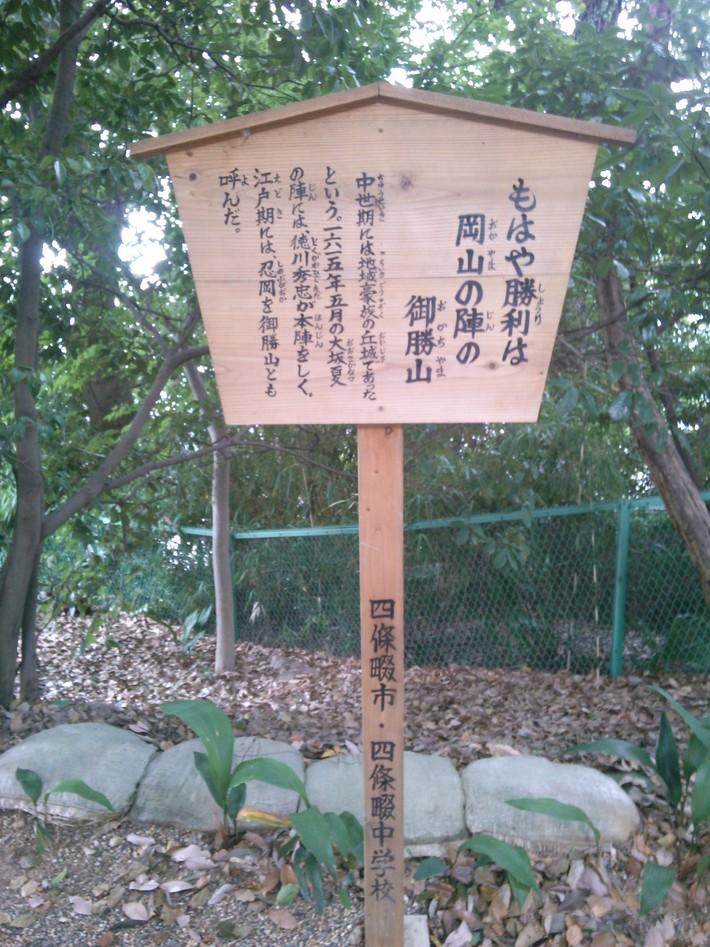 もはや勝利は
岡山の陣の
御勝山
中世期には地域豪族の丘城であった
という。一六一五年五月の大坂夏
の陣には、徳川秀忠が本陣をしく。
江戸期には、忍岡を御勝山とも
呼んだ。
四條畷市・四條畷中学校